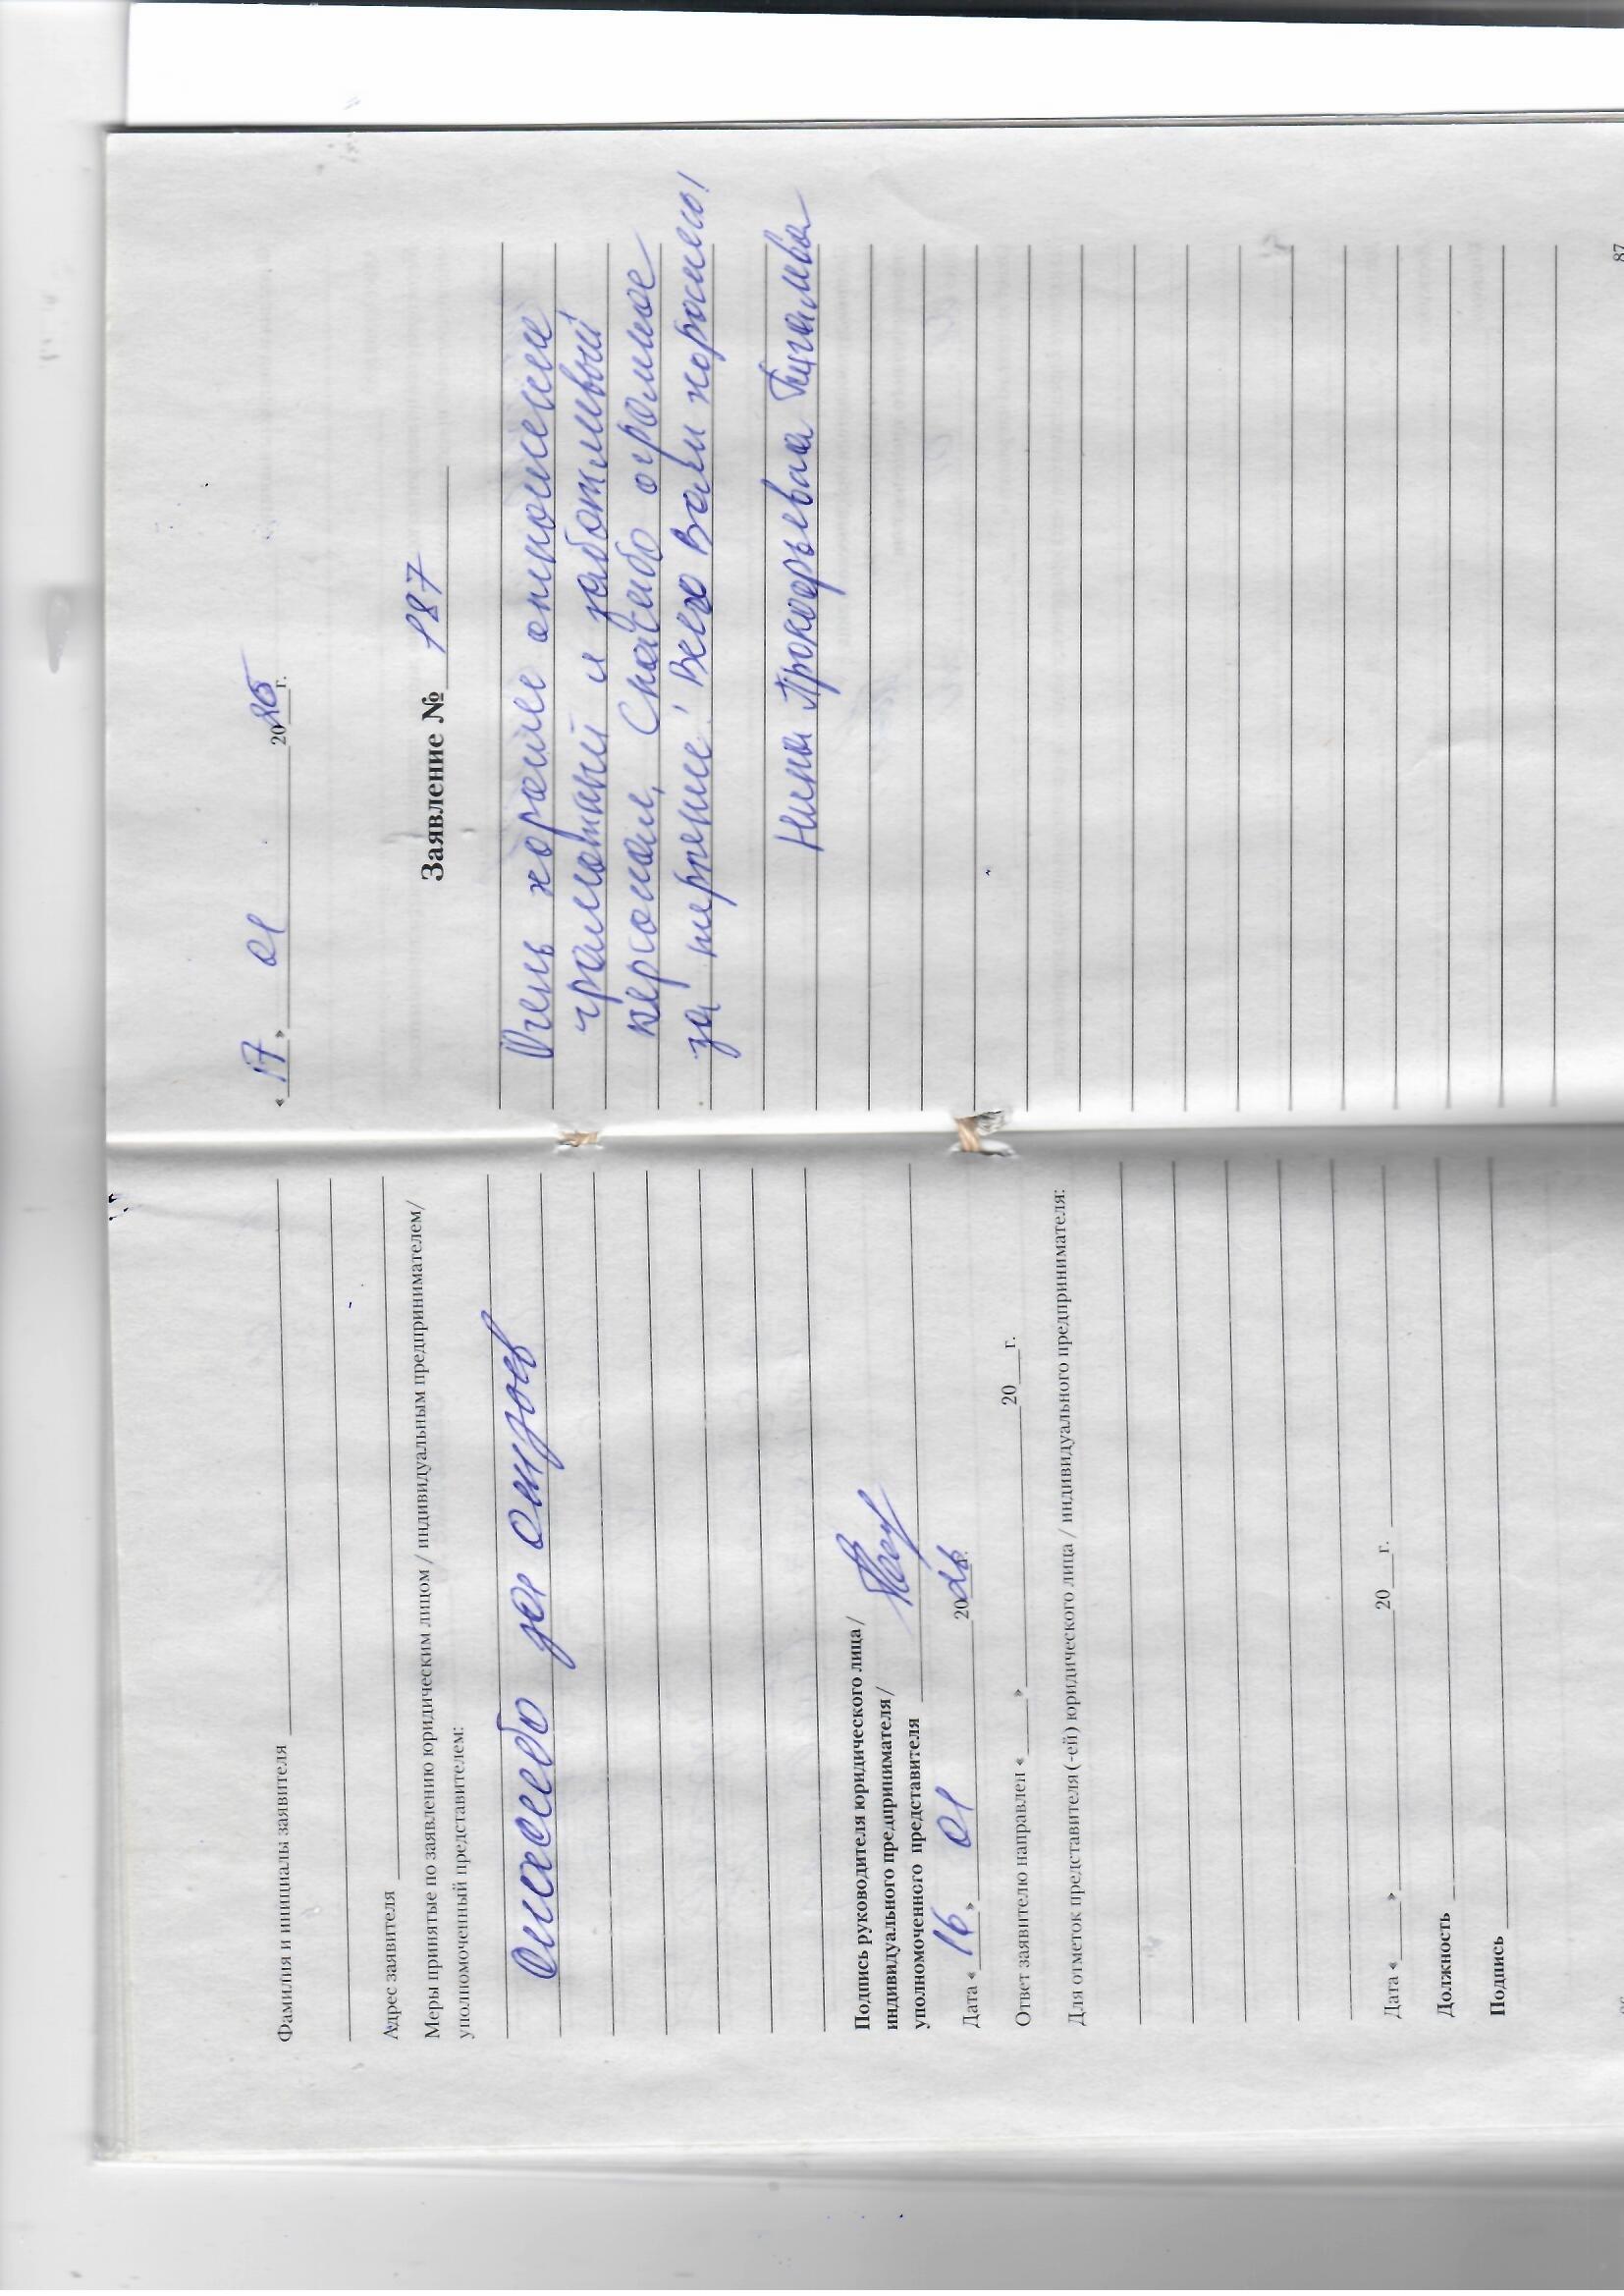 Фамилия и инициалы заявителя
Адрес заявителя
Меры принятые по заявлению юридическим лицом / индивидуальным предпринимателем/
уполномоченный представителем:
Спасибо за отзыв
Подпись руководителя юридического лица /
индивидуального предпринимателя/
уполномоченного представителя
Дата « 16 » 01 20 г.
Ответ заявителю направлен « » 20 г.
Для отметок представителя (-ей) юридического лица / индивидуального предпринимателя:
Дата « » 20 г.
Должность
Подпись
« 17 » 01 2025 г.
Заявление № 187
Очень хорошее отношение
грамотный и заботливый
персонал, Спасибо огромное
за терпение! Всего Вам хорошего!
Нина Прокофьевна
87